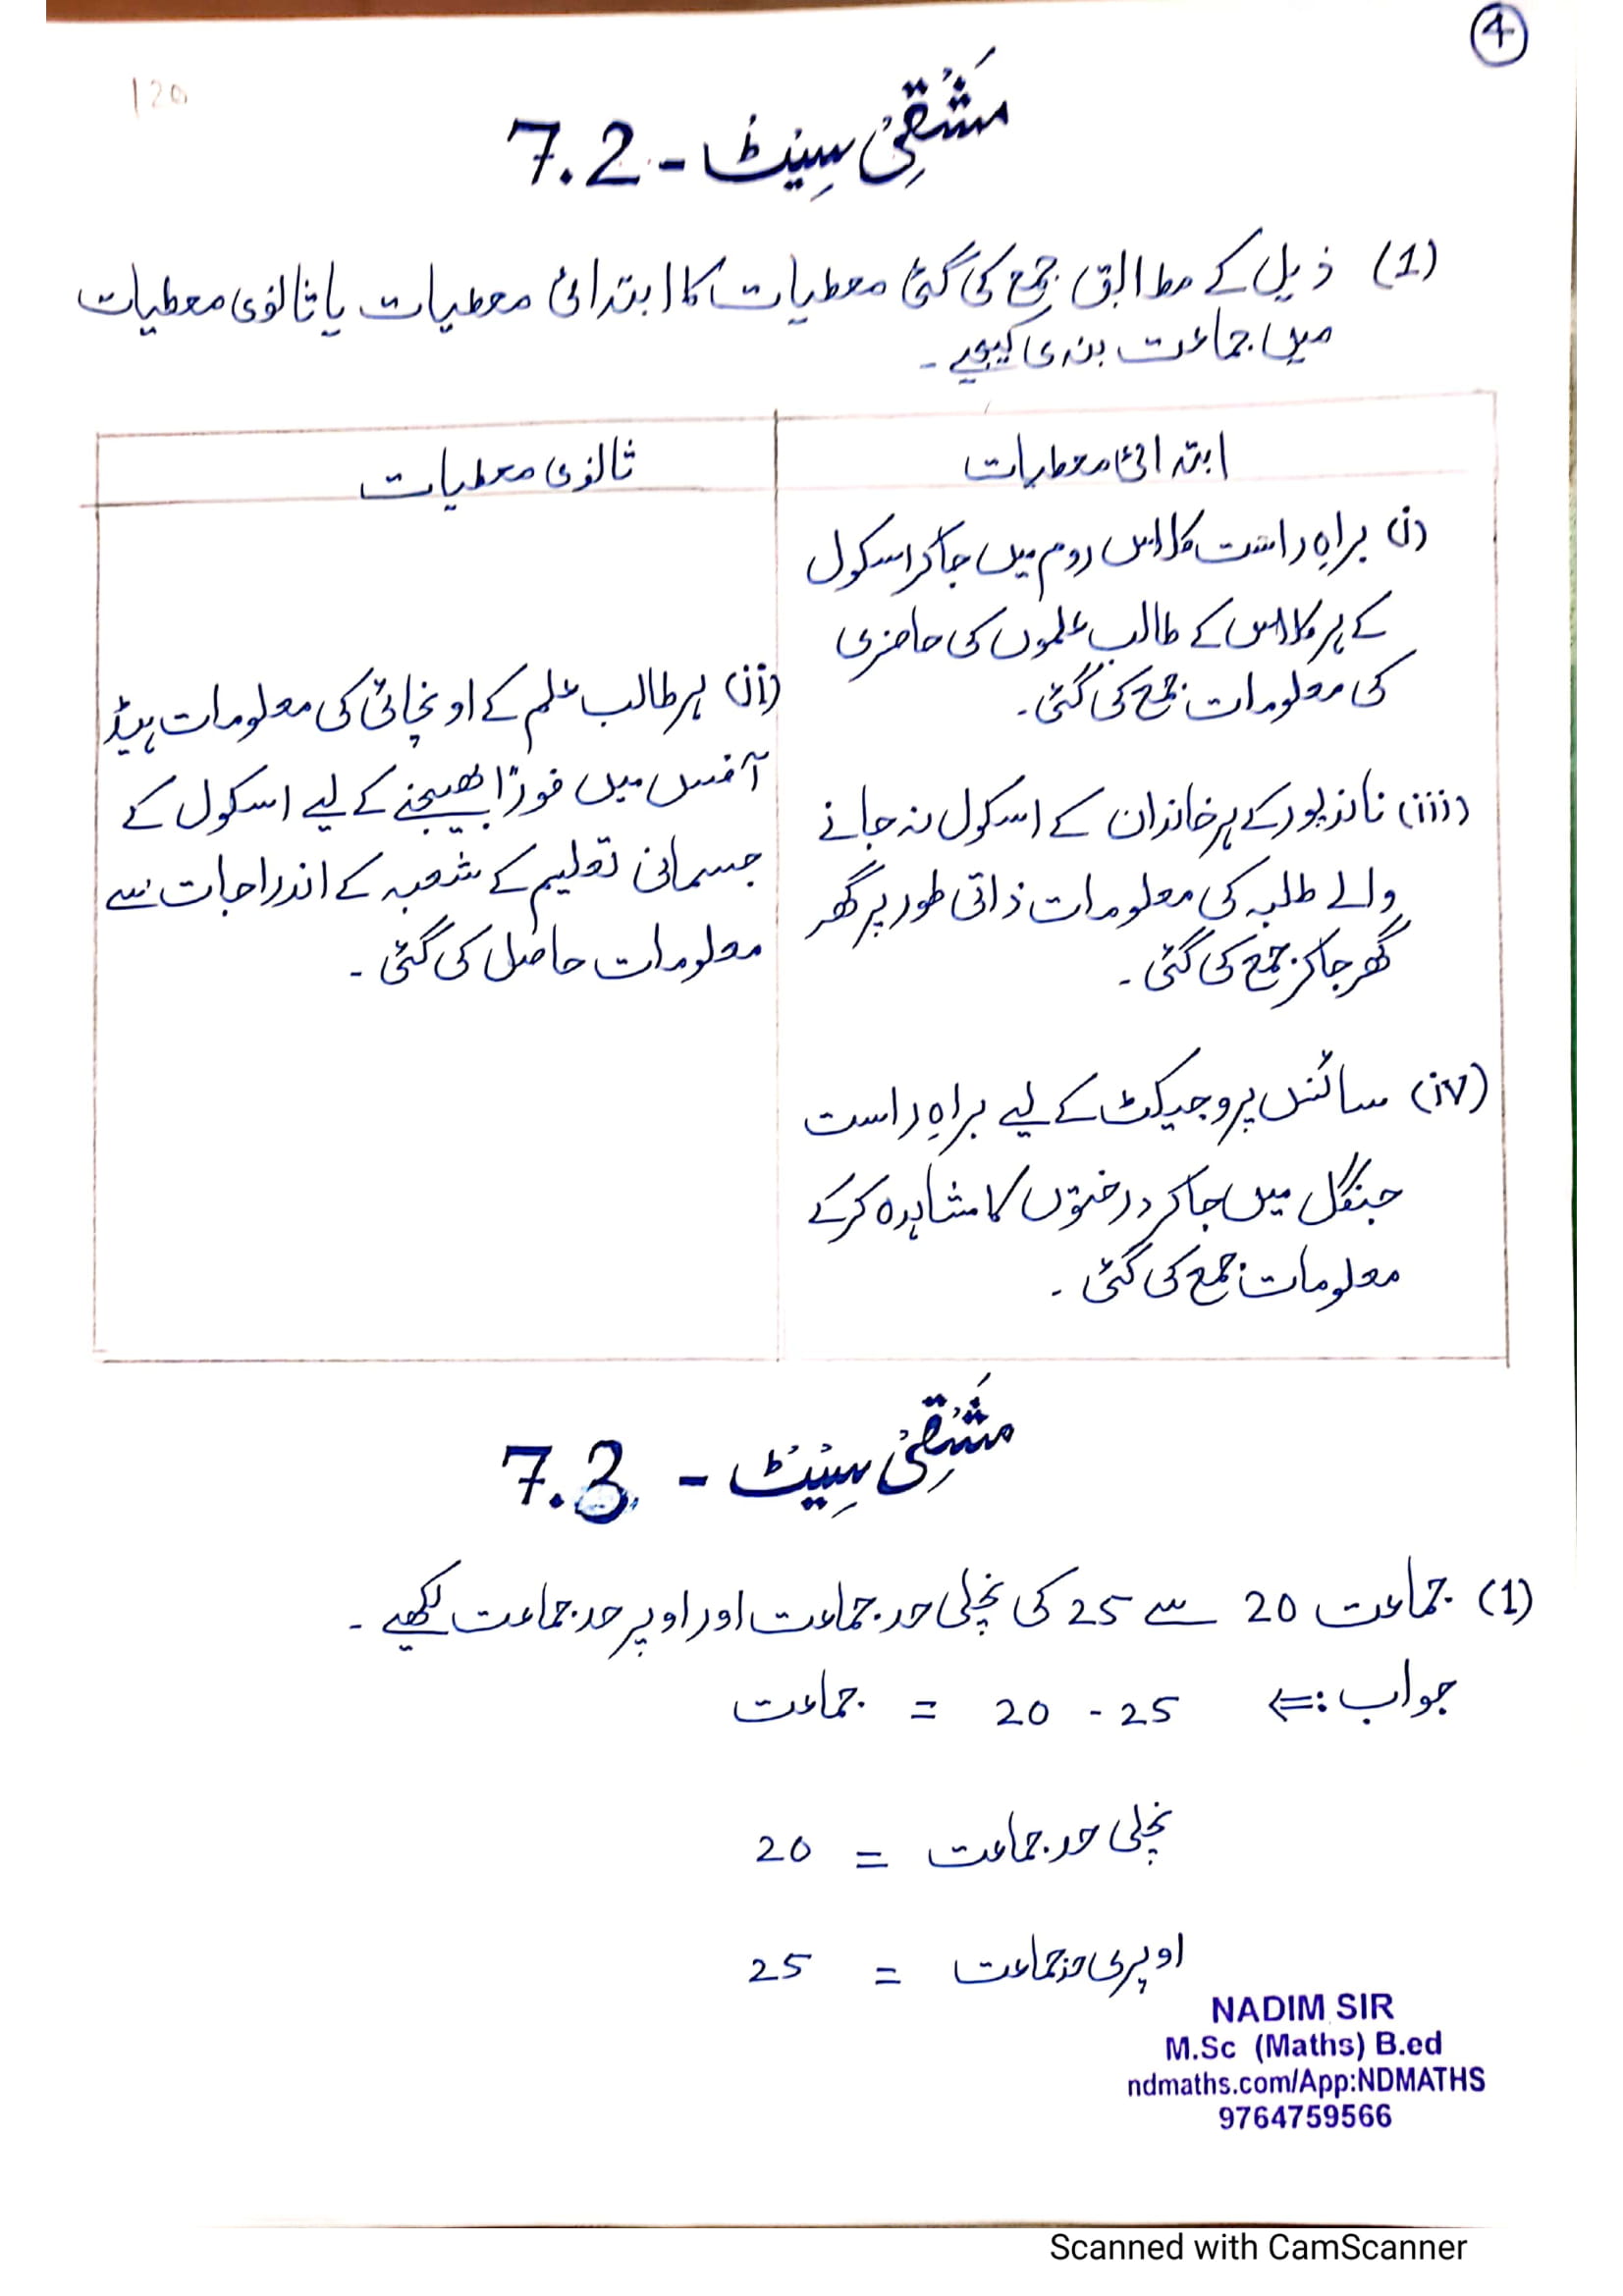 4
120
مَشْقِیْ سِیٹ - 7.2
(1) ذیل کے مطابق جمع کی گئی معطیات کا ابتدائی معطیات یا ثانوی معطیات
میں جماعت بندی کیجیے۔
ابتدائی معطیات
(i) براہِ راست کلاس روم میں جاکر اسکول
کے ہر کلاس کے طالب علموں کی حاضری
کی معلومات جمع کی گئی۔
(iii) ناندپور کے ہر خاندان کے اسکول نہ جانے
والے طلبہ کی معلومات ذاتی طور پر گھر
گھر جاکر جمع کی گئی۔
(iv) سائنس پروجیکٹ کے لیے براہِ راست
جنگل میں جاکر درختوں کا مشاہدہ کرکے
معلومات جمع کی گئی۔
ثانوی معطیات
(ii) ہر طالب علم کے اونچائی کی معلومات ہیڈ
آفس میں فوراً بھیجنے کے لیے اسکول کے
جسمانی تعلیم کے شعبہ کے اندراجات سے
معلومات حاصل کی گئی۔
مَشْقِیْ سِیْٹ - 7.3
(1) جماعت 20 سے 25 کی نچلی حد جماعت اور اوپر حد جماعت لکھیے۔
جواب :⇐ 20 - 25 = جماعت
نچلی حد جماعت = 20
اوپری حد جماعت = 25
NADIM SIR
M.Sc (Maths) B.ed
ndmaths.com/App:NDMATHS
9764759566
Scanned with CamScanner